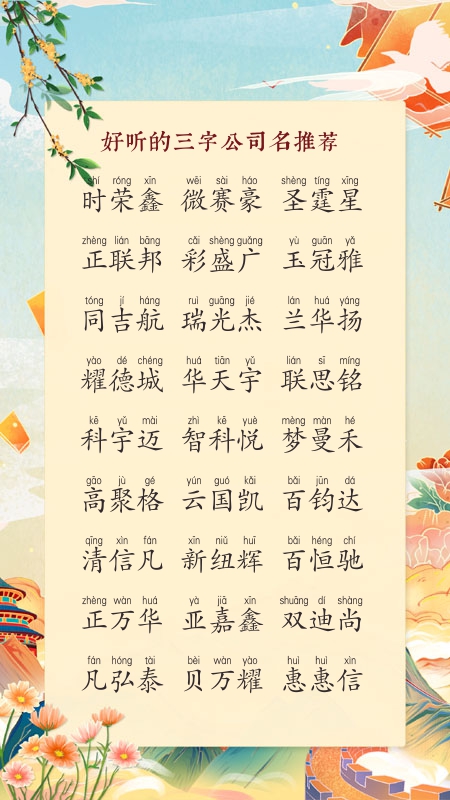 好听的三字公司名推荐
shí róng xīn wēi sài háo shèng tíng xīng
时荣鑫 微赛豪 圣霆星
zhèng lián bāng cǎi shèng guǎng yù guān yǎ
正联邦 彩盛广 玉冠雅
tóng jí háng ruì guāng jié lán huá yáng
同吉航 瑞光杰 兰华扬
yào dé chéng huá tiān yǔ lián sī míng
耀德城 华天宇 联思铭
kē yǔ mài zhì kē yuè mèng màn hé
科宇迈 智科悦 梦曼禾
gāo jù gé yún guó kǎi bǎi jūn dá
高聚格 云国凯 百钧达
qīng xìn fán xīn niǔ huī bǎi héng chí
清信凡 新纽辉 百恒驰
zhèng wàn huá yà jiā xīn shuāng dí shàng
正万华 亚嘉鑫 双迪尚
fán hóng tài bèi wàn yào huì huì xìn
凡弘泰 贝万耀 惠惠信